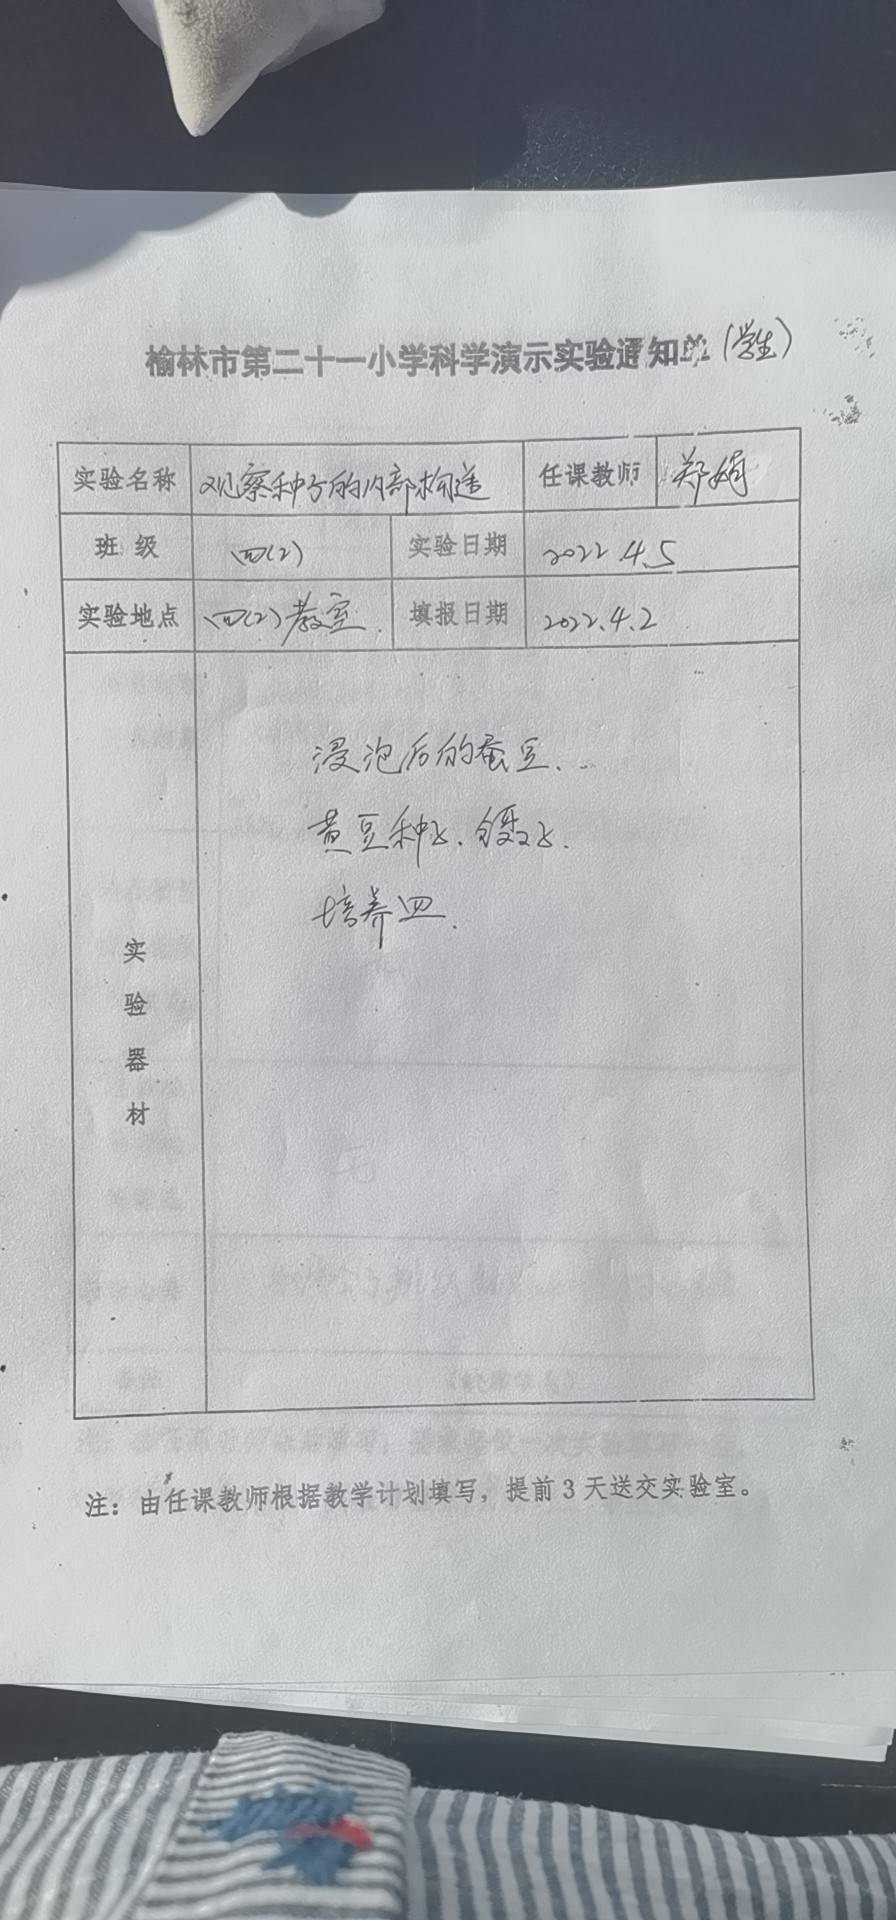 榆林市第二十一小学科学演示实验通知单（学生）
实验名称 观察种子的内部构造 任课教师 郑娟
班级 四(2) 实验日期 2022.4.5
实验地点 四(2)教室. 填报日期 2022.4.2
浸泡后的蚕豆、
黄豆种子、镊子、
培养皿.
实
验
器
材
注：由任课教师根据教学计划填写，提前3天送交实验室。